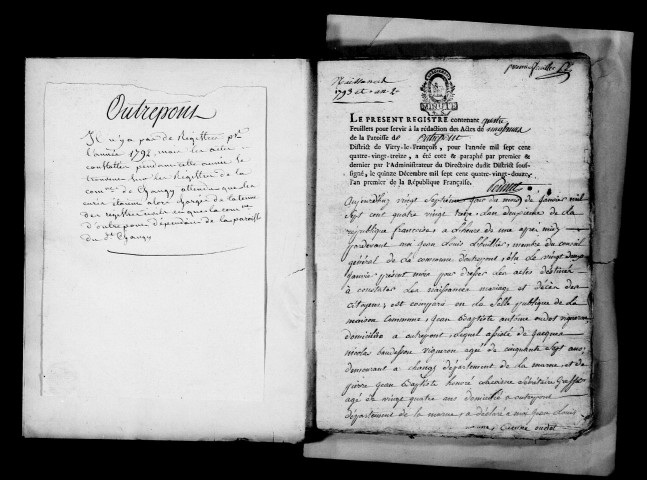 Outrepont
Il n'y a pas de Registre pr.
l'année 1792, mais les actes
constatés pendant cette année se
trouvent sur les Registres de la
com.ne de Changy attendu que les
curés étaient alors chargés de la tenue
des registres et que la com.ne
d'outrepont dépendait de la paroisse
du d.t Changy
Naissances
1793 et an 2
premier feuillet
MINUTE
LE PRESENT REGISTRE contenant quatre
Feuillets pour servir à la rédaction des Actes de naissances
de la Paroisse de outrepont
District de Vitry-le-François, pour l'année mil sept cent
quatre-vingt-treize, a été coté & paraphé par premier &
dernier par l'Administrateur du Directoire dudit District sous-
signé, le quinze Décembre mil sept cent quatre-vingt-douze,
l'an premier de la République Française.
Aujourd'huy vingt Septième jour du mois de janvier mil
Sept cent quatre vingt treize L'an deuxième de la
république francoise à heure de une apre midy
pardevant moi jean Louis membre du conseil
général de la commune doutrepont élu le vingt
janvier présent mois pour dresser les actes destinés
à constater Les naissances mariages et décès des
citoyens; est comparu en la Salle publique de la
maison Commune, jean Baptiste antoine oudet vigneron
domicilié a outrepont, lequel assisté de jacques
nicolas baudesson vigneron agé de cinquante Sept ans
demeurant a changy département de la marne et de
pierre jean Baptiste honoré Secrétaire Greffier
agé de vingt quatre ans domicilié a outrepont
département de la marne, a déclaré a moi jean Louis
oudet